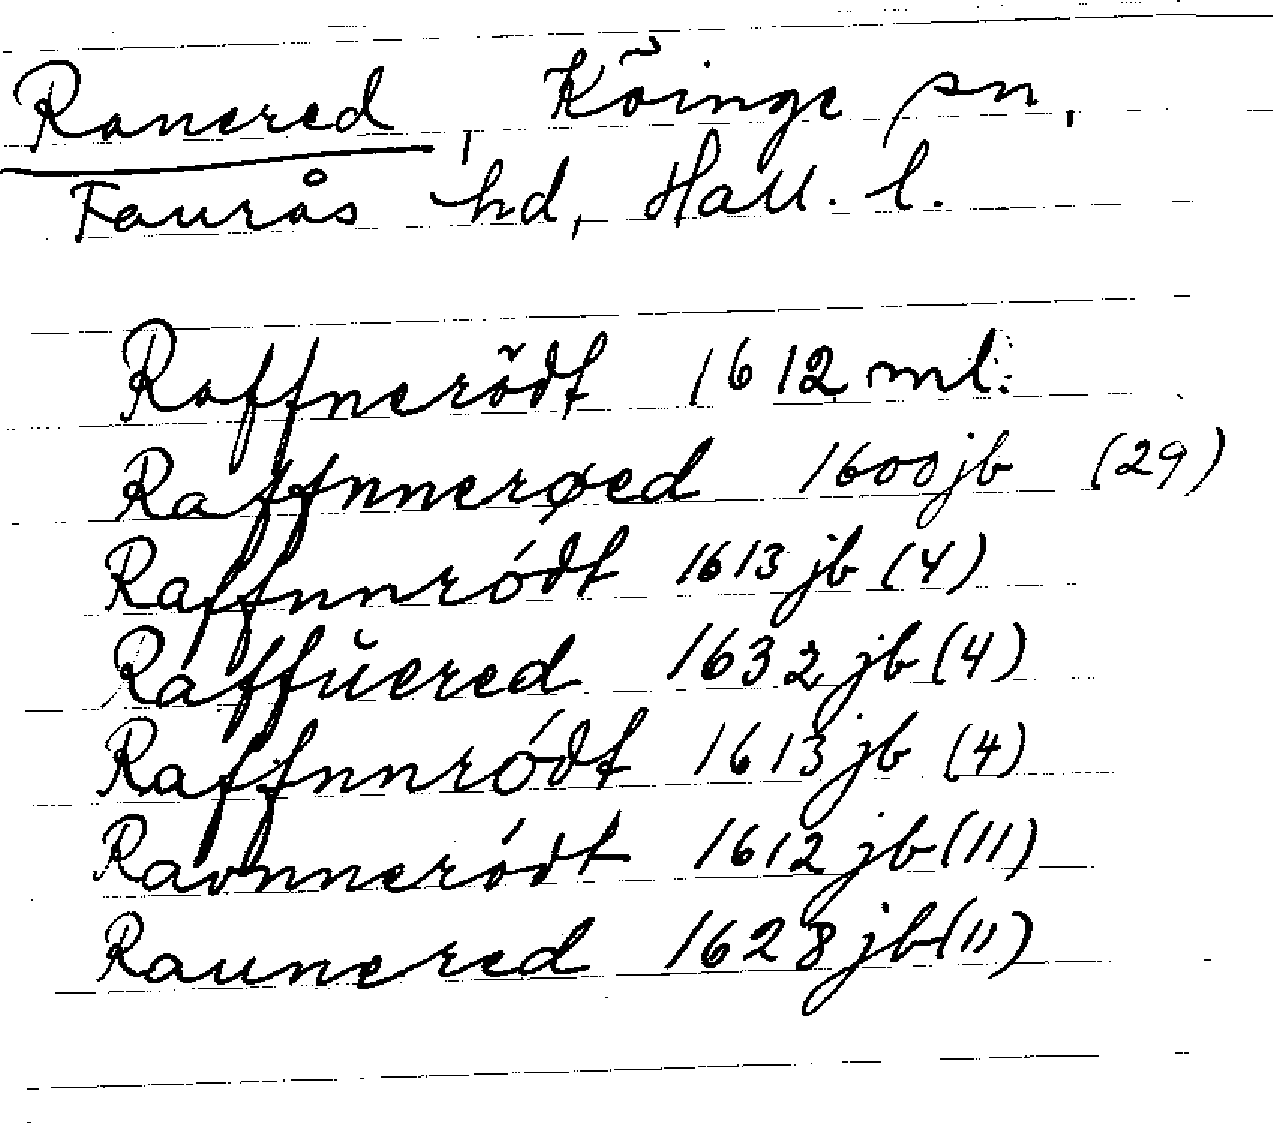 Ranered, Köinge sn,
Faurås hd, Hall. l.
Raffnerödt 1612 ml:
Raffnnerøed 1600 jb (29)
Raffnnródt 1613 jb (4)
Raffŭered 1632 jb (4)
Raffnnródt 1613 jb (4)
Ravnneródt 1612 jb (11)
Raunered 1628 jb (11)